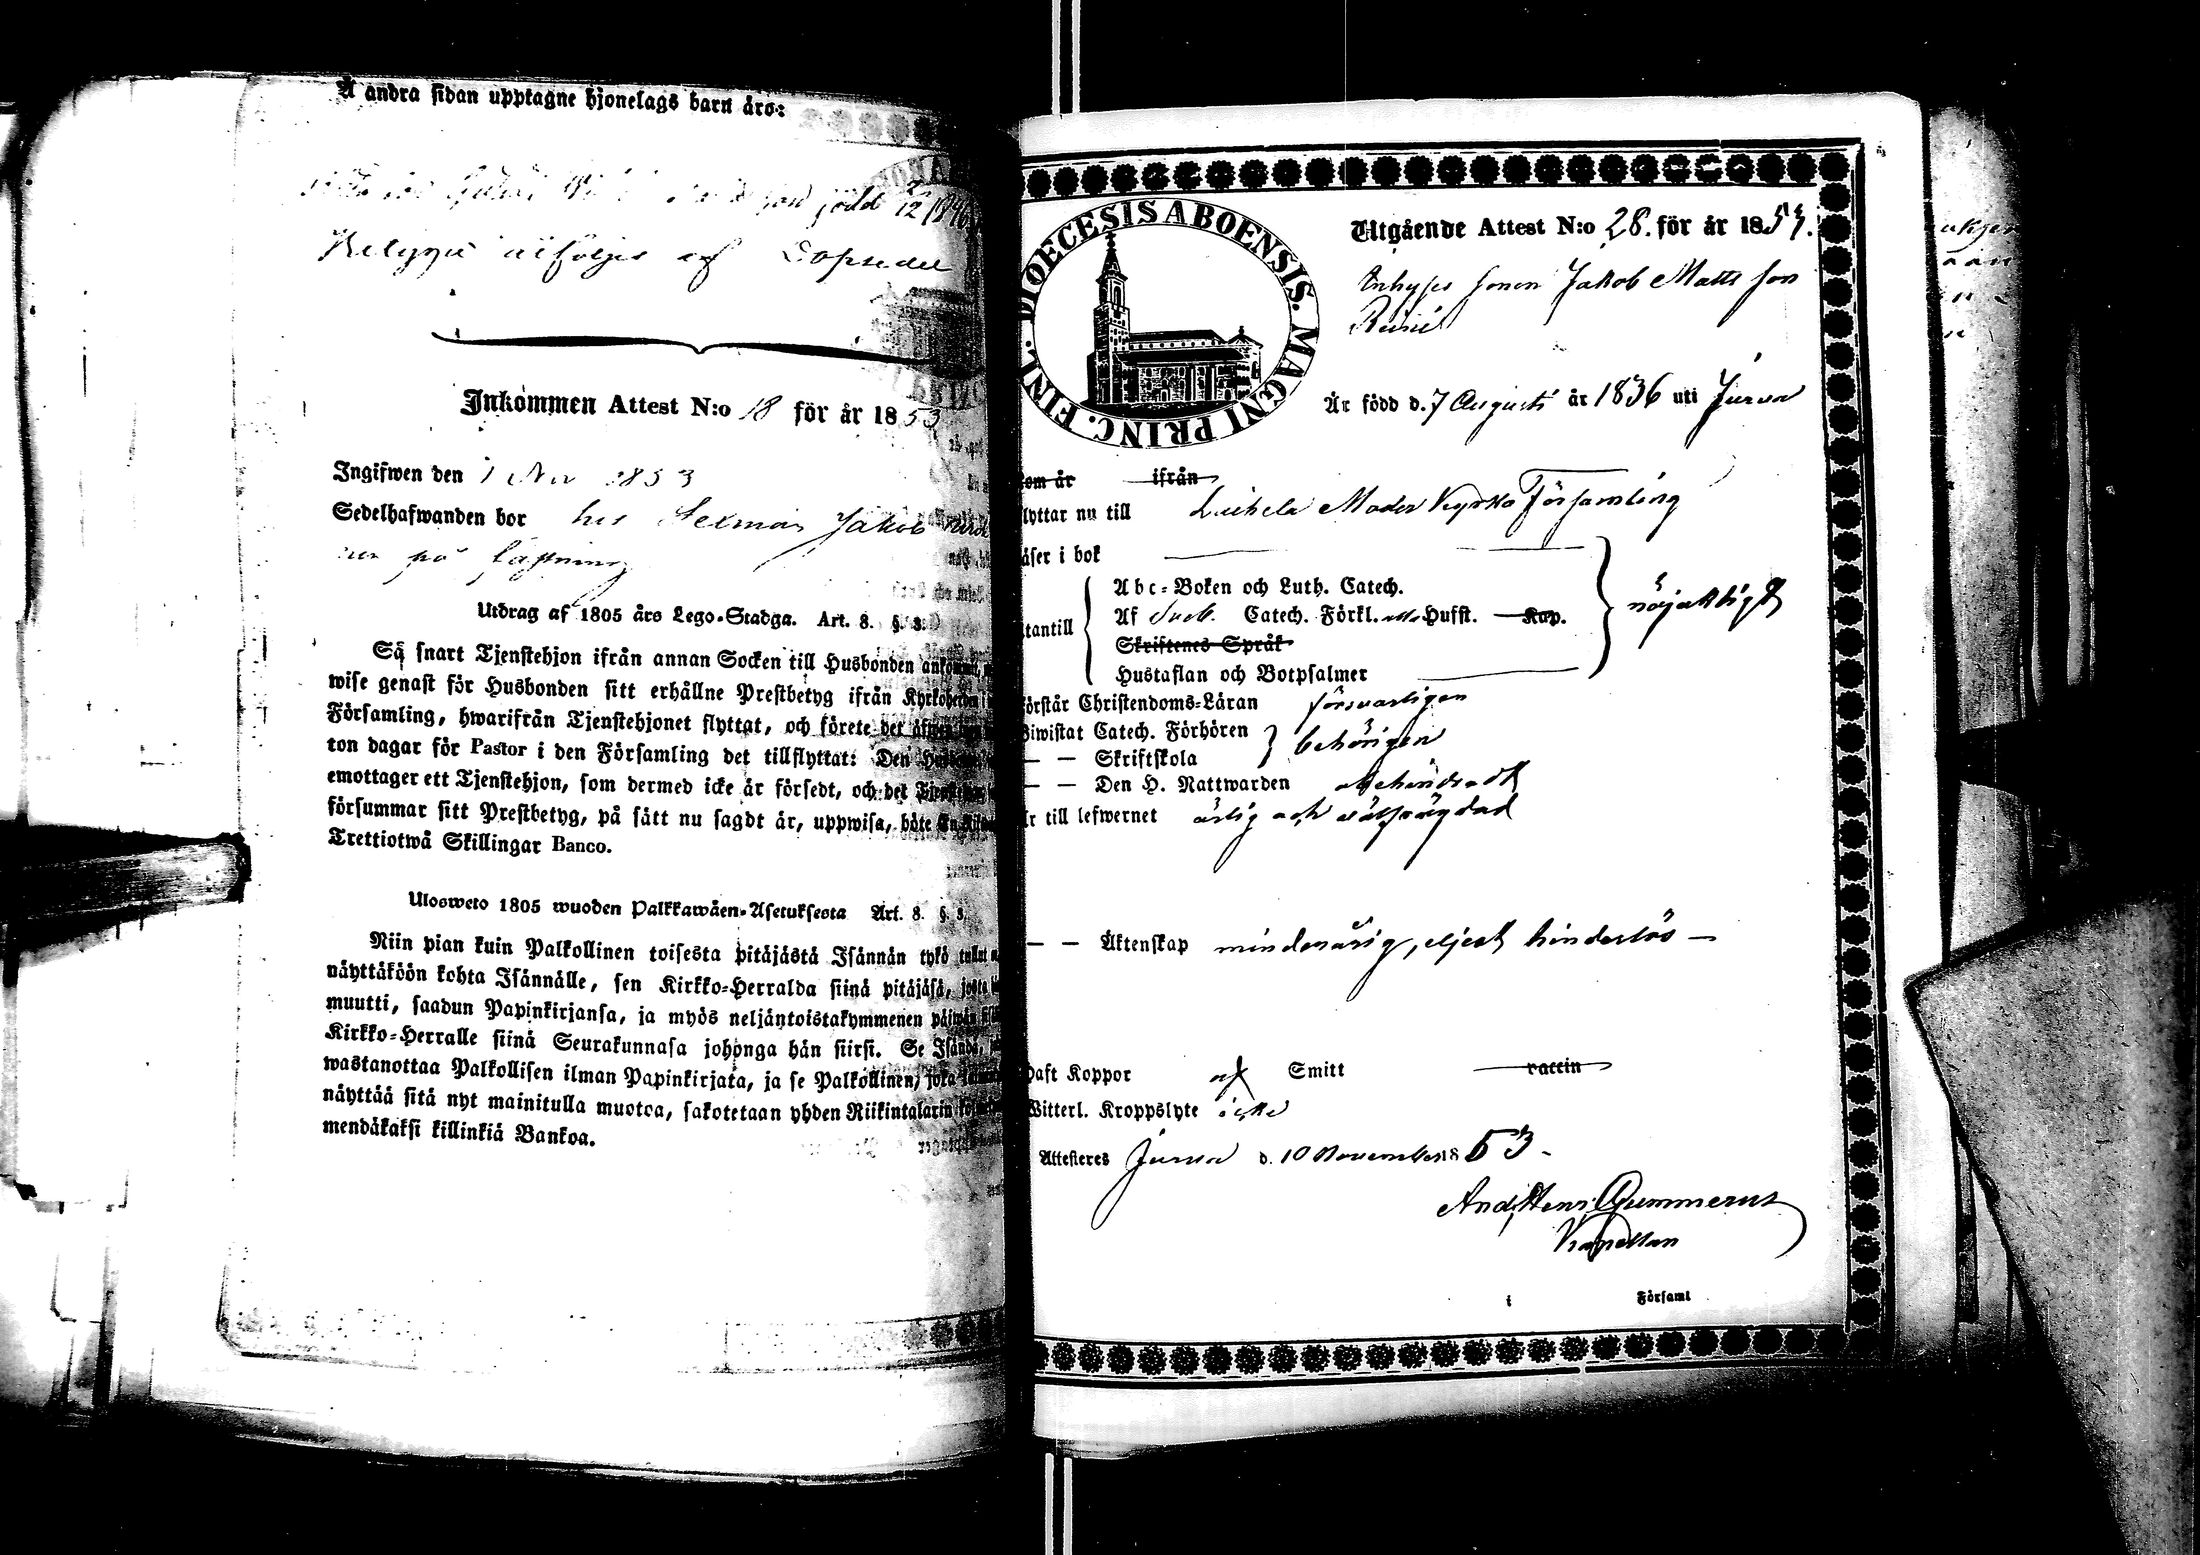 Å andra sidan upptagne hjonelags barn äro:
född 12/1846
åtföljes af
Inkommen Attest N:o 18 för år 1853
Ingifwen den 1 Nov 1853
Sedelhafwanden bor hos Jakob
på
Utdrag af 1805 års Lego-Stadga. Art. 8. §. 8.
Så snart Tjenstehjon ifrån annan Socken till Husbonden
wise genast för Husbonden sitt erhållne Prestbetyg ifrån
Församling, hwarifrån Tjenstehjonet flyttat, och förete det
ton dagar för Pastor i den Församling det tillflyttat: Den
emottager ett Tjenstehjon, som dermed icke är försedt, och det
försummar sitt Prestbetyg, på sätt nu sagdt är, uppwisa, böte
Trettiotwå Skillingar Banco.
Ulosweto 1805 wuoden Palkkawäen-Asetuksesta Art. 8. §. 8
Niin pian kuin Palkollinen toisesta pitäjästä Isännän tykö
näyttäköön kohta Isännälle, sen Kirkko-Herralda siinä pitäjäsä,
muutti, saadun Papinkirjansa, ja myös neljäntoistakymmenen
Kirkko-Herralle siinä Seurakunnasa johonga hän siirsi. Se
wastanottaa Palkollisen ilman Papinkirjata, ja se Palkollinen,
näyttää sitä nyt mainitulla muotoa, sakotetaan yhden Riikintalarin
mendäkaksi killinkiä Bankoa.
DIOECESIS ABOENSIS. MAGNI PRINC. FINL.
Utgående Attest N:o 28. för år 1853.
sonen Jakob Matts son
Är född d. 7 Augusti år 1836 uti Jurva
om är ifrån
lyttar nu till Moder Kyrko Församling
äser i bok
tantill
Abc-Boken och Luth. Catech.
Af Sveb. Catech. Förkl. Hufst. Kap.
Skriftenes Språk
Hustaflan och Botpsalmer
nöjaktigt
örstår Christendoms-Läran försvarligen
iwistat Catech. Förhören
— — Skriftskola
behörigen
— — Den H. Nattwarden obehindradt
r till lefwernet ärlig och välfrägdad
— — Äktenskap minderårig, eljest hinderlös —
aft Koppor Smitt vaccin
Witterl. Kroppslyte icke
Attesteres Jurva d. 10 November 1853.
And. Henr. Gummerus
Kapellan
i Församl